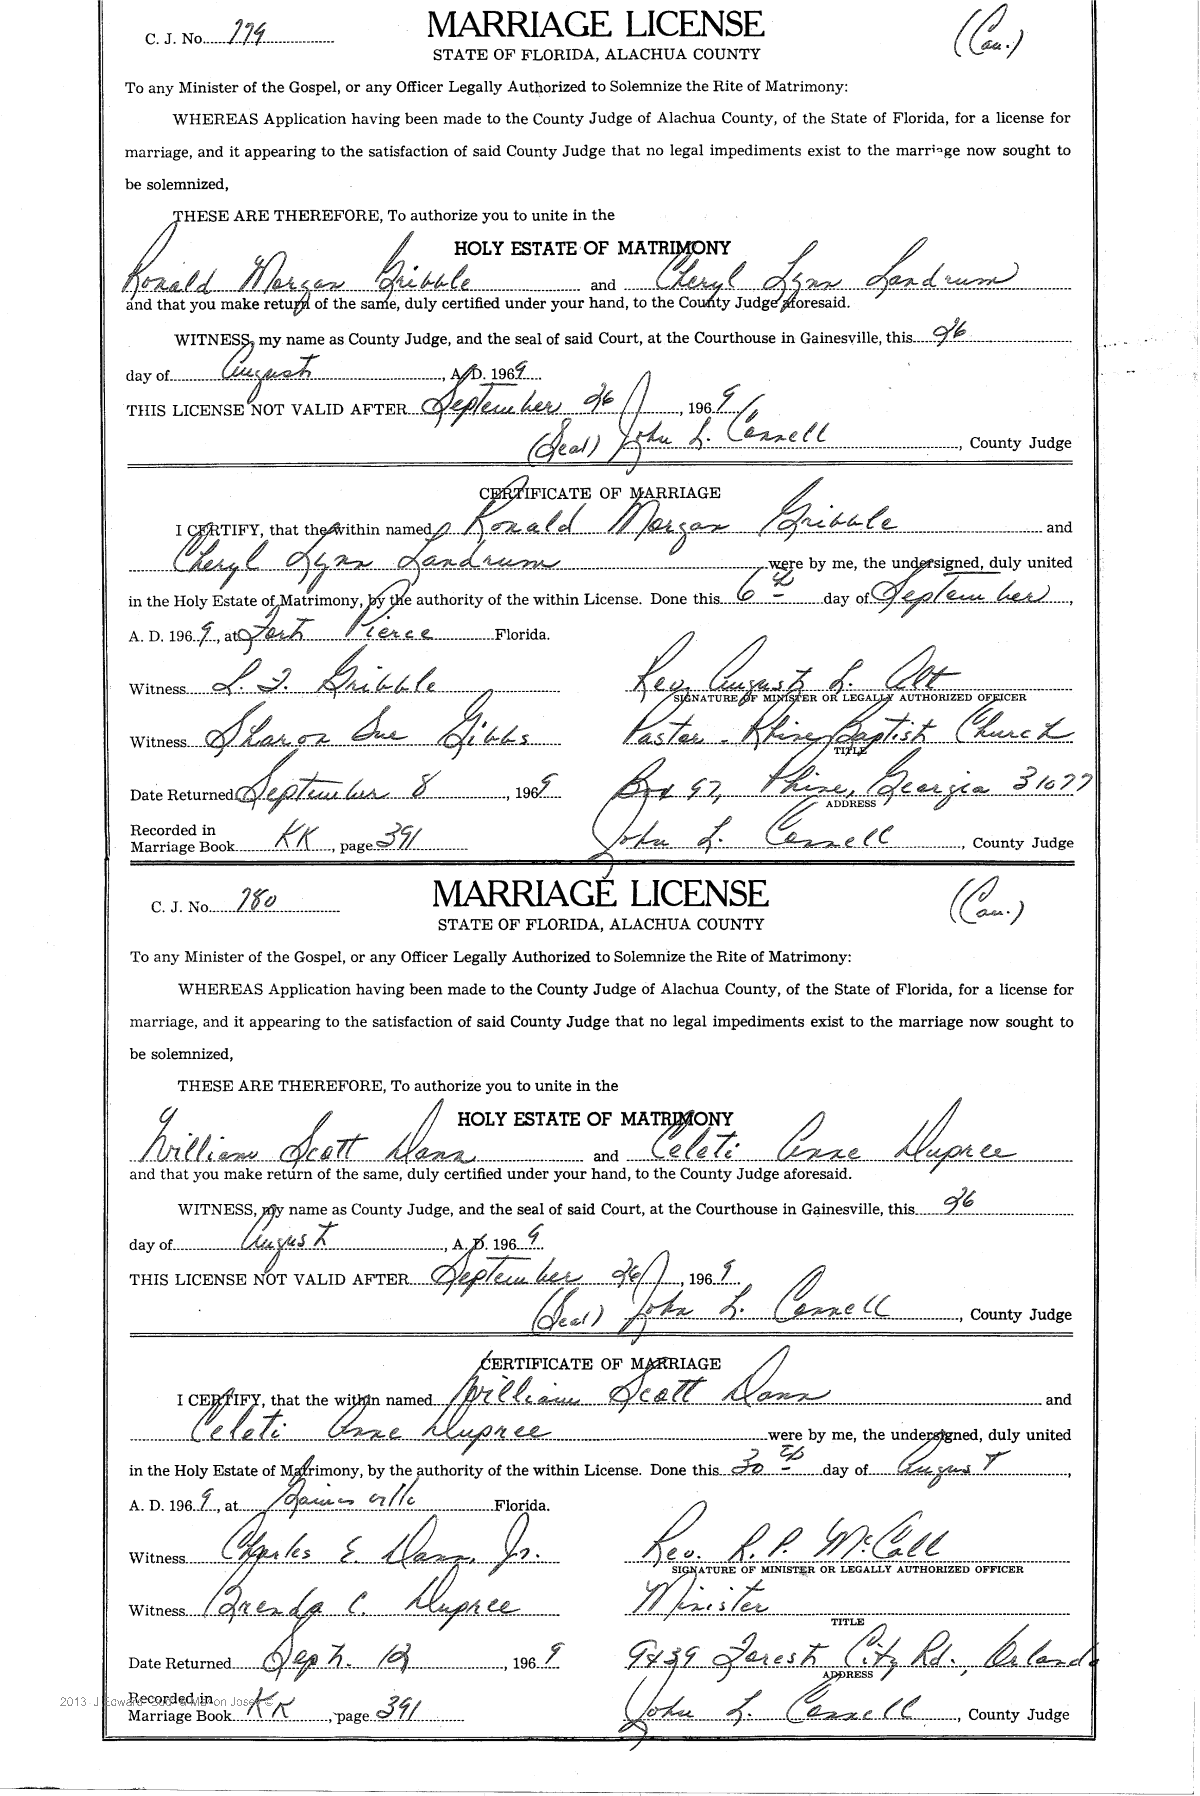 C. J. No. 779
MARRIAGE LICENSE
(Cau.)
STATE OF FLORIDA, ALACHUA COUNTY
To any Minister of the Gospel, or any Officer Legally Authorized to Solemnize the Rite of Matrimony:
WHEREAS Application having been made to the County Judge of Alachua County, of the State of Florida, for a license for
marriage, and it appearing to the satisfaction of said County Judge that no legal impediments exist to the marriage now sought to
be solemnized,
THESE ARE THEREFORE, To authorize you to unite in the
HOLY ESTATE OF MATRIMONY
Ronald Morgan Gribble and Cheryl Lynn Landrum
and that you make return of the same, duly certified under your hand, to the County Judge aforesaid.
WITNESS, my name as County Judge, and the seal of said Court, at the Courthouse in Gainesville, this 26
day of August, A. D. 1969
THIS LICENSE NOT VALID AFTER September 26, 1969
(Seal) John L. Connell, County Judge
CERTIFICATE OF MARRIAGE
I CERTIFY, that the within named Ronald Morgan Gribble and
Cheryl Lynn Landrum were by me, the undersigned, duly united
in the Holy Estate of Matrimony, by the authority of the within License. Done this 6th day of September,
A. D. 1969, at Fort Pierce Florida.
Witness L. F. Gribble Rev. August L. Alt
SIGNATURE OF MINISTER OR LEGALLY AUTHORIZED OFFICER
Witness Sharon Sue Gibbs Pastor - Rhine Baptist Church
TITLE
Date Returned September 8, 1969 Box 97, Rhine, Georgia 31077
ADDRESS
Recorded in
Marriage Book KK, page 391 John L. Connell, County Judge
C. J. No. 780
MARRIAGE LICENSE
(Cau.)
STATE OF FLORIDA, ALACHUA COUNTY
To any Minister of the Gospel, or any Officer Legally Authorized to Solemnize the Rite of Matrimony:
WHEREAS Application having been made to the County Judge of Alachua County, of the State of Florida, for a license for
marriage, and it appearing to the satisfaction of said County Judge that no legal impediments exist to the marriage now sought to
be solemnized,
THESE ARE THEREFORE, To authorize you to unite in the
HOLY ESTATE OF MATRIMONY
William Scott Dann and Celeti Anne Dupree
and that you make return of the same, duly certified under your hand, to the County Judge aforesaid.
WITNESS, my name as County Judge, and the seal of said Court, at the Courthouse in Gainesville, this 26
day of August, A. D. 1969
THIS LICENSE NOT VALID AFTER September 26, 1969
(Seal) John L. Connell, County Judge
CERTIFICATE OF MARRIAGE
I CERTIFY, that the within named William Scott Dann and
Celeti Anne Dupree were by me, the undersigned, duly united
in the Holy Estate of Matrimony, by the authority of the within License. Done this 30th day of August,
A. D. 1969, at Gainesville Florida.
Witness Charles E. Dann, Jr. Rev. R. P. McCall
SIGNATURE OF MINISTER OR LEGALLY AUTHORIZED OFFICER
Witness Brenda C. Dupree Minister
TITLE
Date Returned Sept. 12, 1969 9439 Forest City Rd., Orlando
ADDRESS
Recorded in
Marriage Book KK, page 391 John L. Connell, County Judge
2013 J Edward